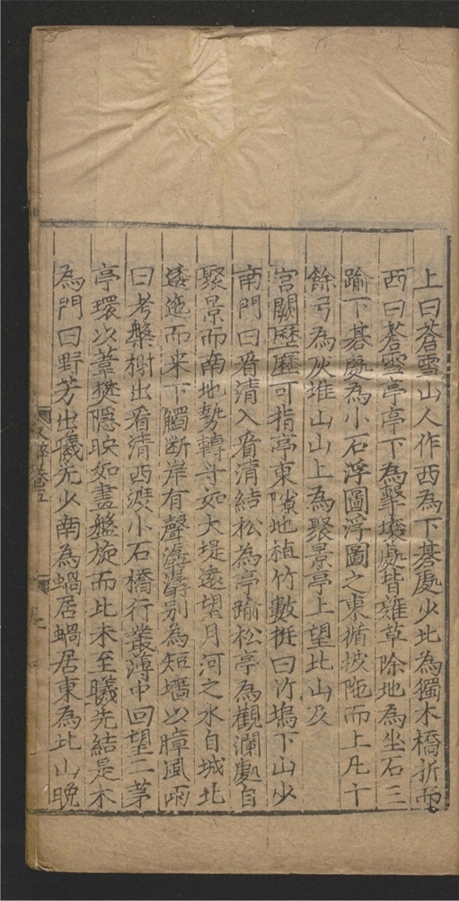 上曰蒼雪山人作西為下碁處少北為獨木橋折而
西曰蒼雪亭亭下為擊壤處皆雜草除地為坐石三
踰下碁處為小石浮圖浮圖之東循坡陁而上凡十
餘弓為灰堆山山上為聚景亭上望北山及
宮闕歷歷可指亭東隙地植竹數挺曰竹塢下山少
南門曰看清入看清結松為亭踰松亭為觀瀾處自
聚景而南地勢轉斗如大堤遠望月河之水自城北
逶迤而來下觸断岸有聲潺潺別為短墻以障風雨
曰考槃榭出看清西渡小石橋行叢薄中回望二茅
亭環以葦樊隠映如畫盤旋而北未至曦先結是木
為門曰野芳出曦先少南為蝸居蝸居東為北山晚